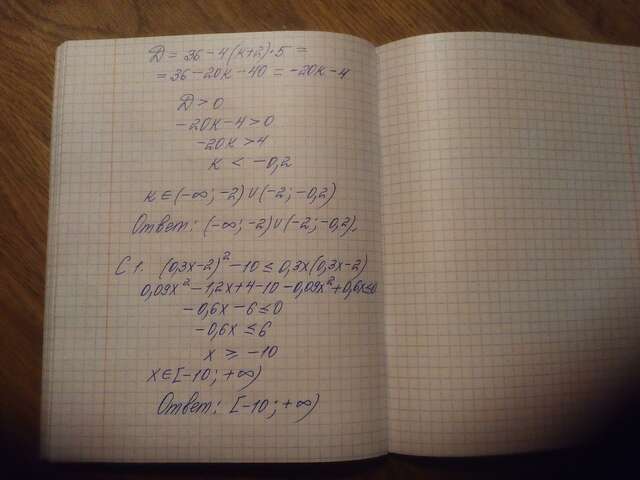 D = 36 - 4(к+2)·5 =
= 36 - 20к - 40 = -20к - 4
D > 0
-20к - 4 > 0
-20к > 4
к < -0,2
к ∈ (-∞; -2) ∪ (-2; -0,2)
Ответ: (-∞; -2) ∪ (-2; -0,2).
С 1. (0,3x-2)² - 10 ≤ 0,3x(0,3x-2)
0,09x² - 1,2x + 4 - 10 - 0,09x² + 0,6x ≤ 0
-0,6x - 6 ≤ 0
-0,6x ≤ 6
x ≥ -10
x ∈ [-10; +∞)
Ответ: [-10; +∞)